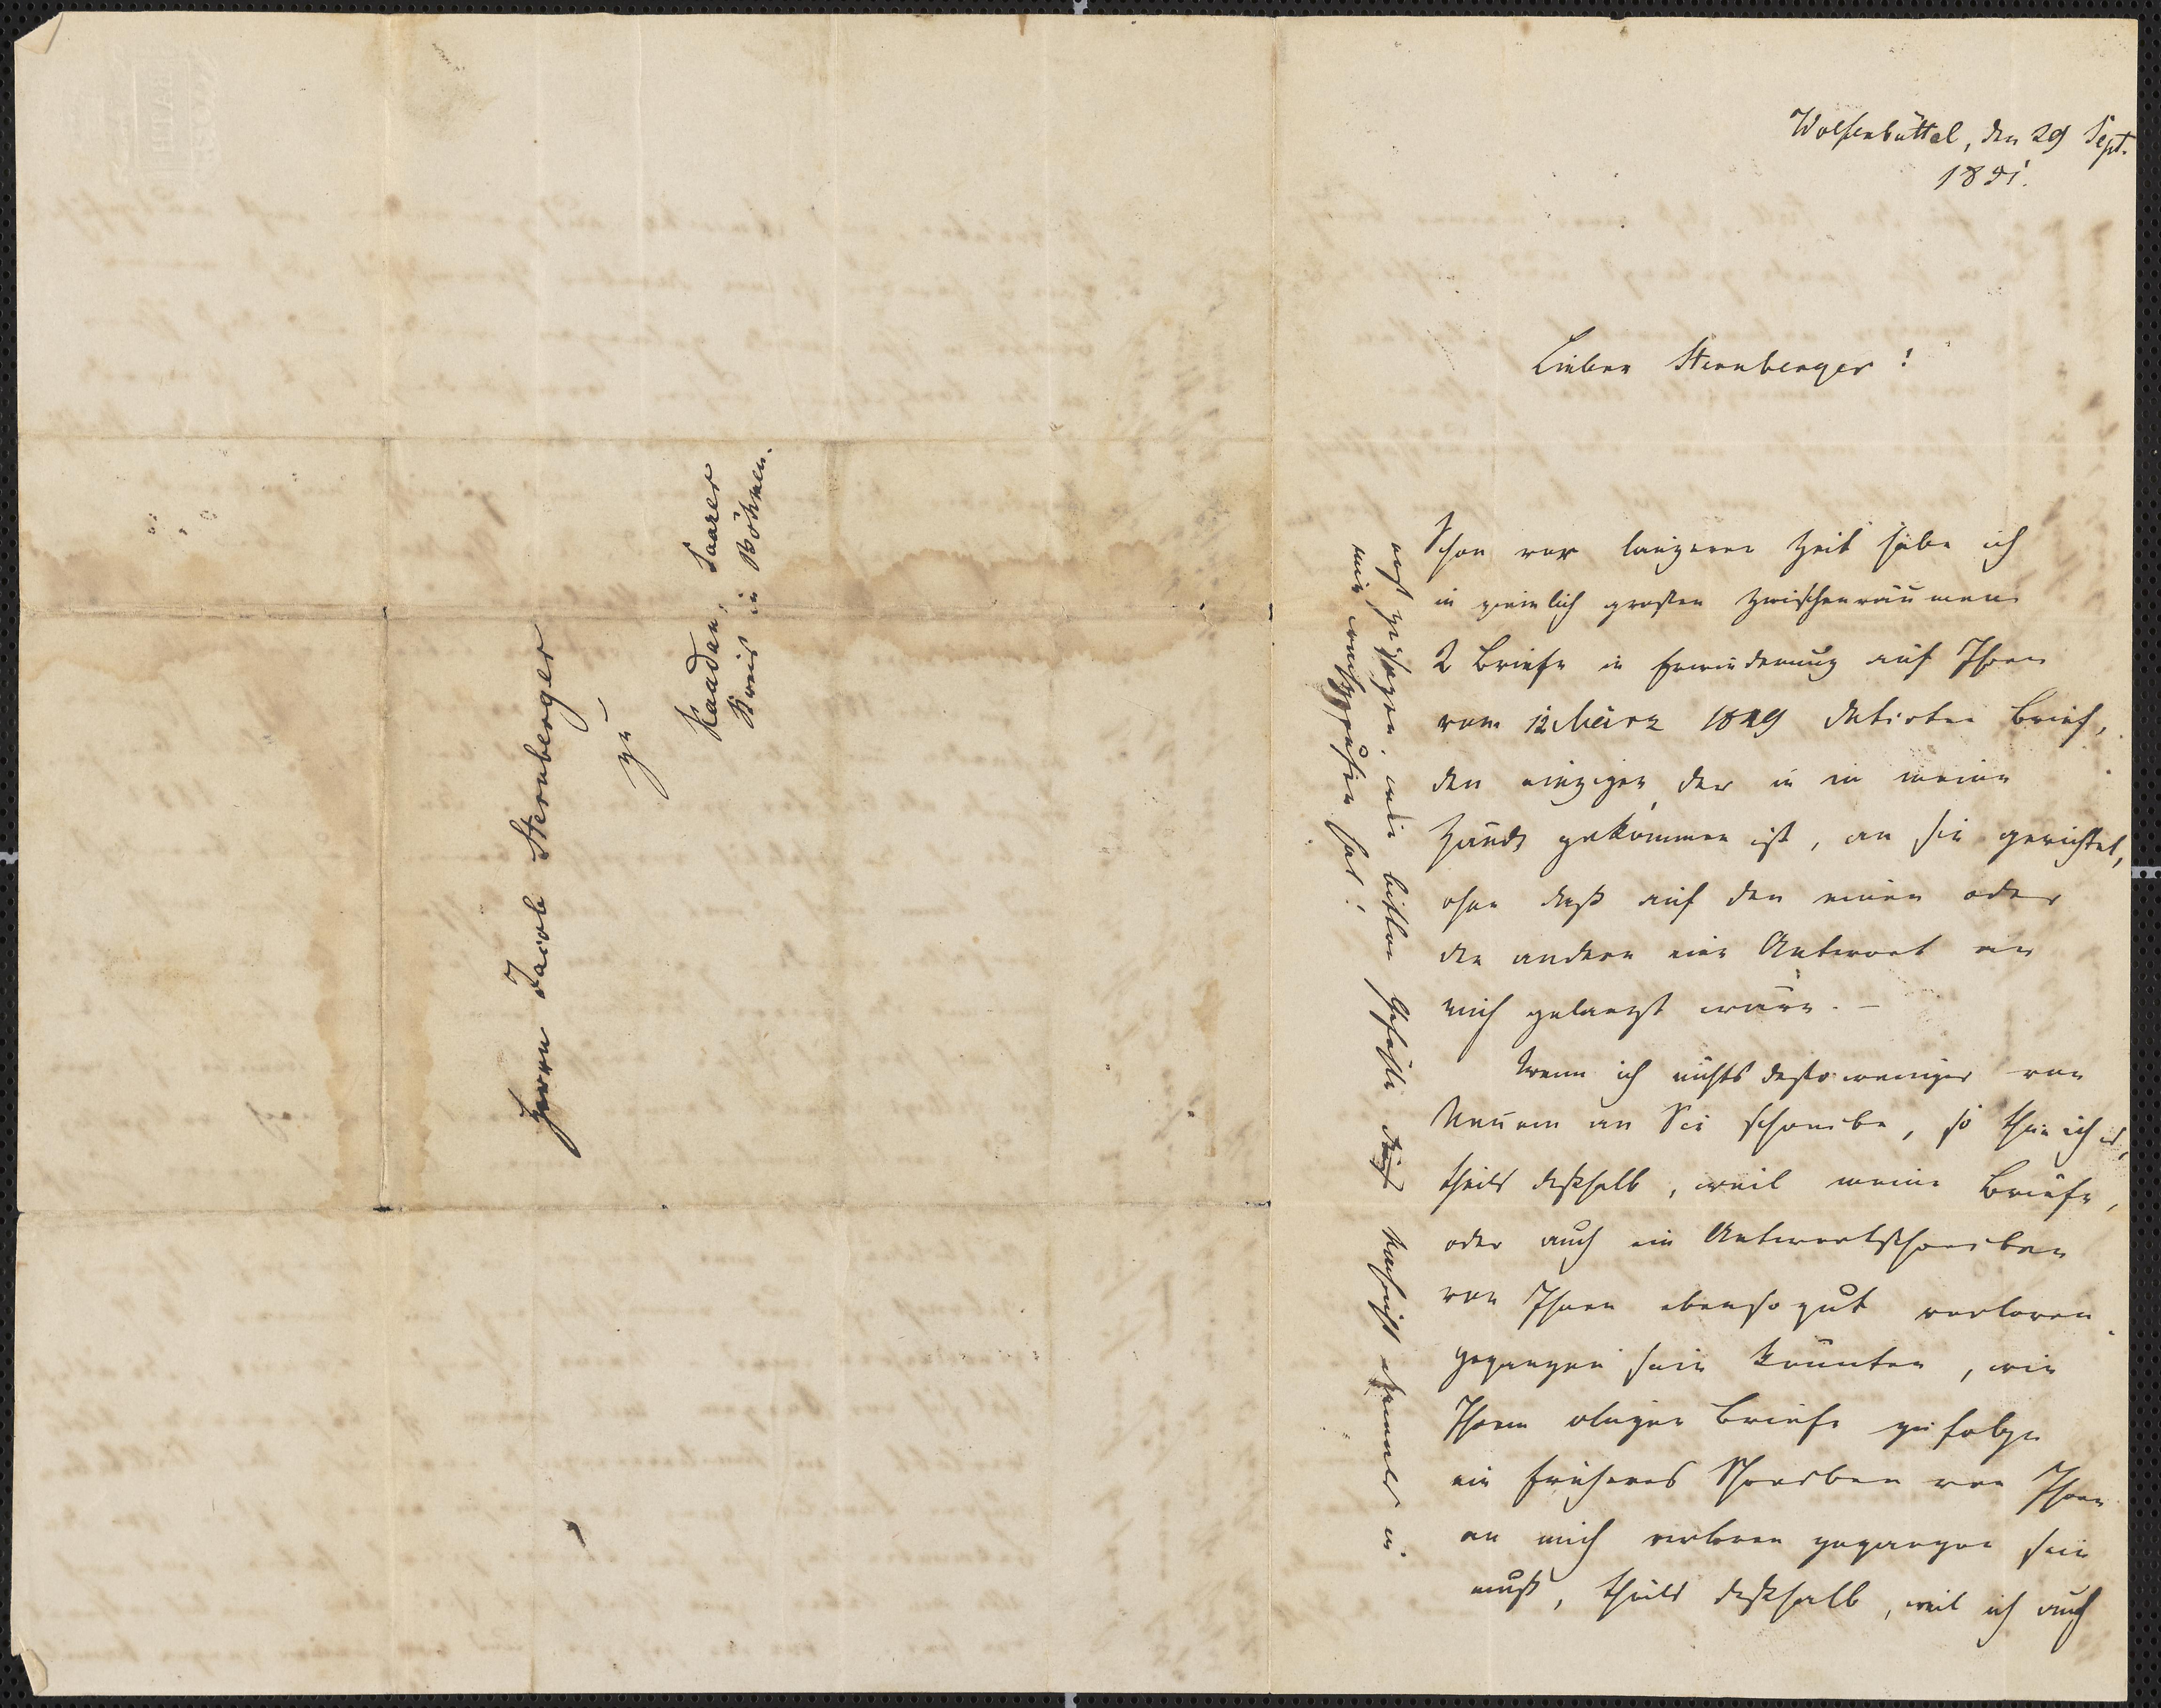 Wolfenbüttel, den 29 Sept.
1851.
Lieber Sternberger!
Schon vor längerer Zeit habe ich
in ziemlich großen Zwischenräumen
2 Briefe in Erwiederung auf Ihren
vom 12 März 1849 datirten Brief,
den einzigen, der in meine
Hände gekommen ist, an Sie gerichtet,
ohne daß auf den einen oder
den andern eine Antwort an
mich gelangt wäre. –
Wenn ich nichts desto weniger von
Neuem an Sie schreibe, so thue ich es,
theils deßhalb, weil meine Briefe,
oder auch ein Antwortschreiben
von Ihnen ebenso gut verloren
gegangen sein könnten, wie
Ihrem obigen Briefe zu folge
ein früheres Schreiben von Ihnen
an mich verloren gegangen sein
muß, theils deßhalb, weil ich auch
mir
Herrn Jacob Sternberger
zu
Kaadan, Saazer
Kreis in Böhmen.